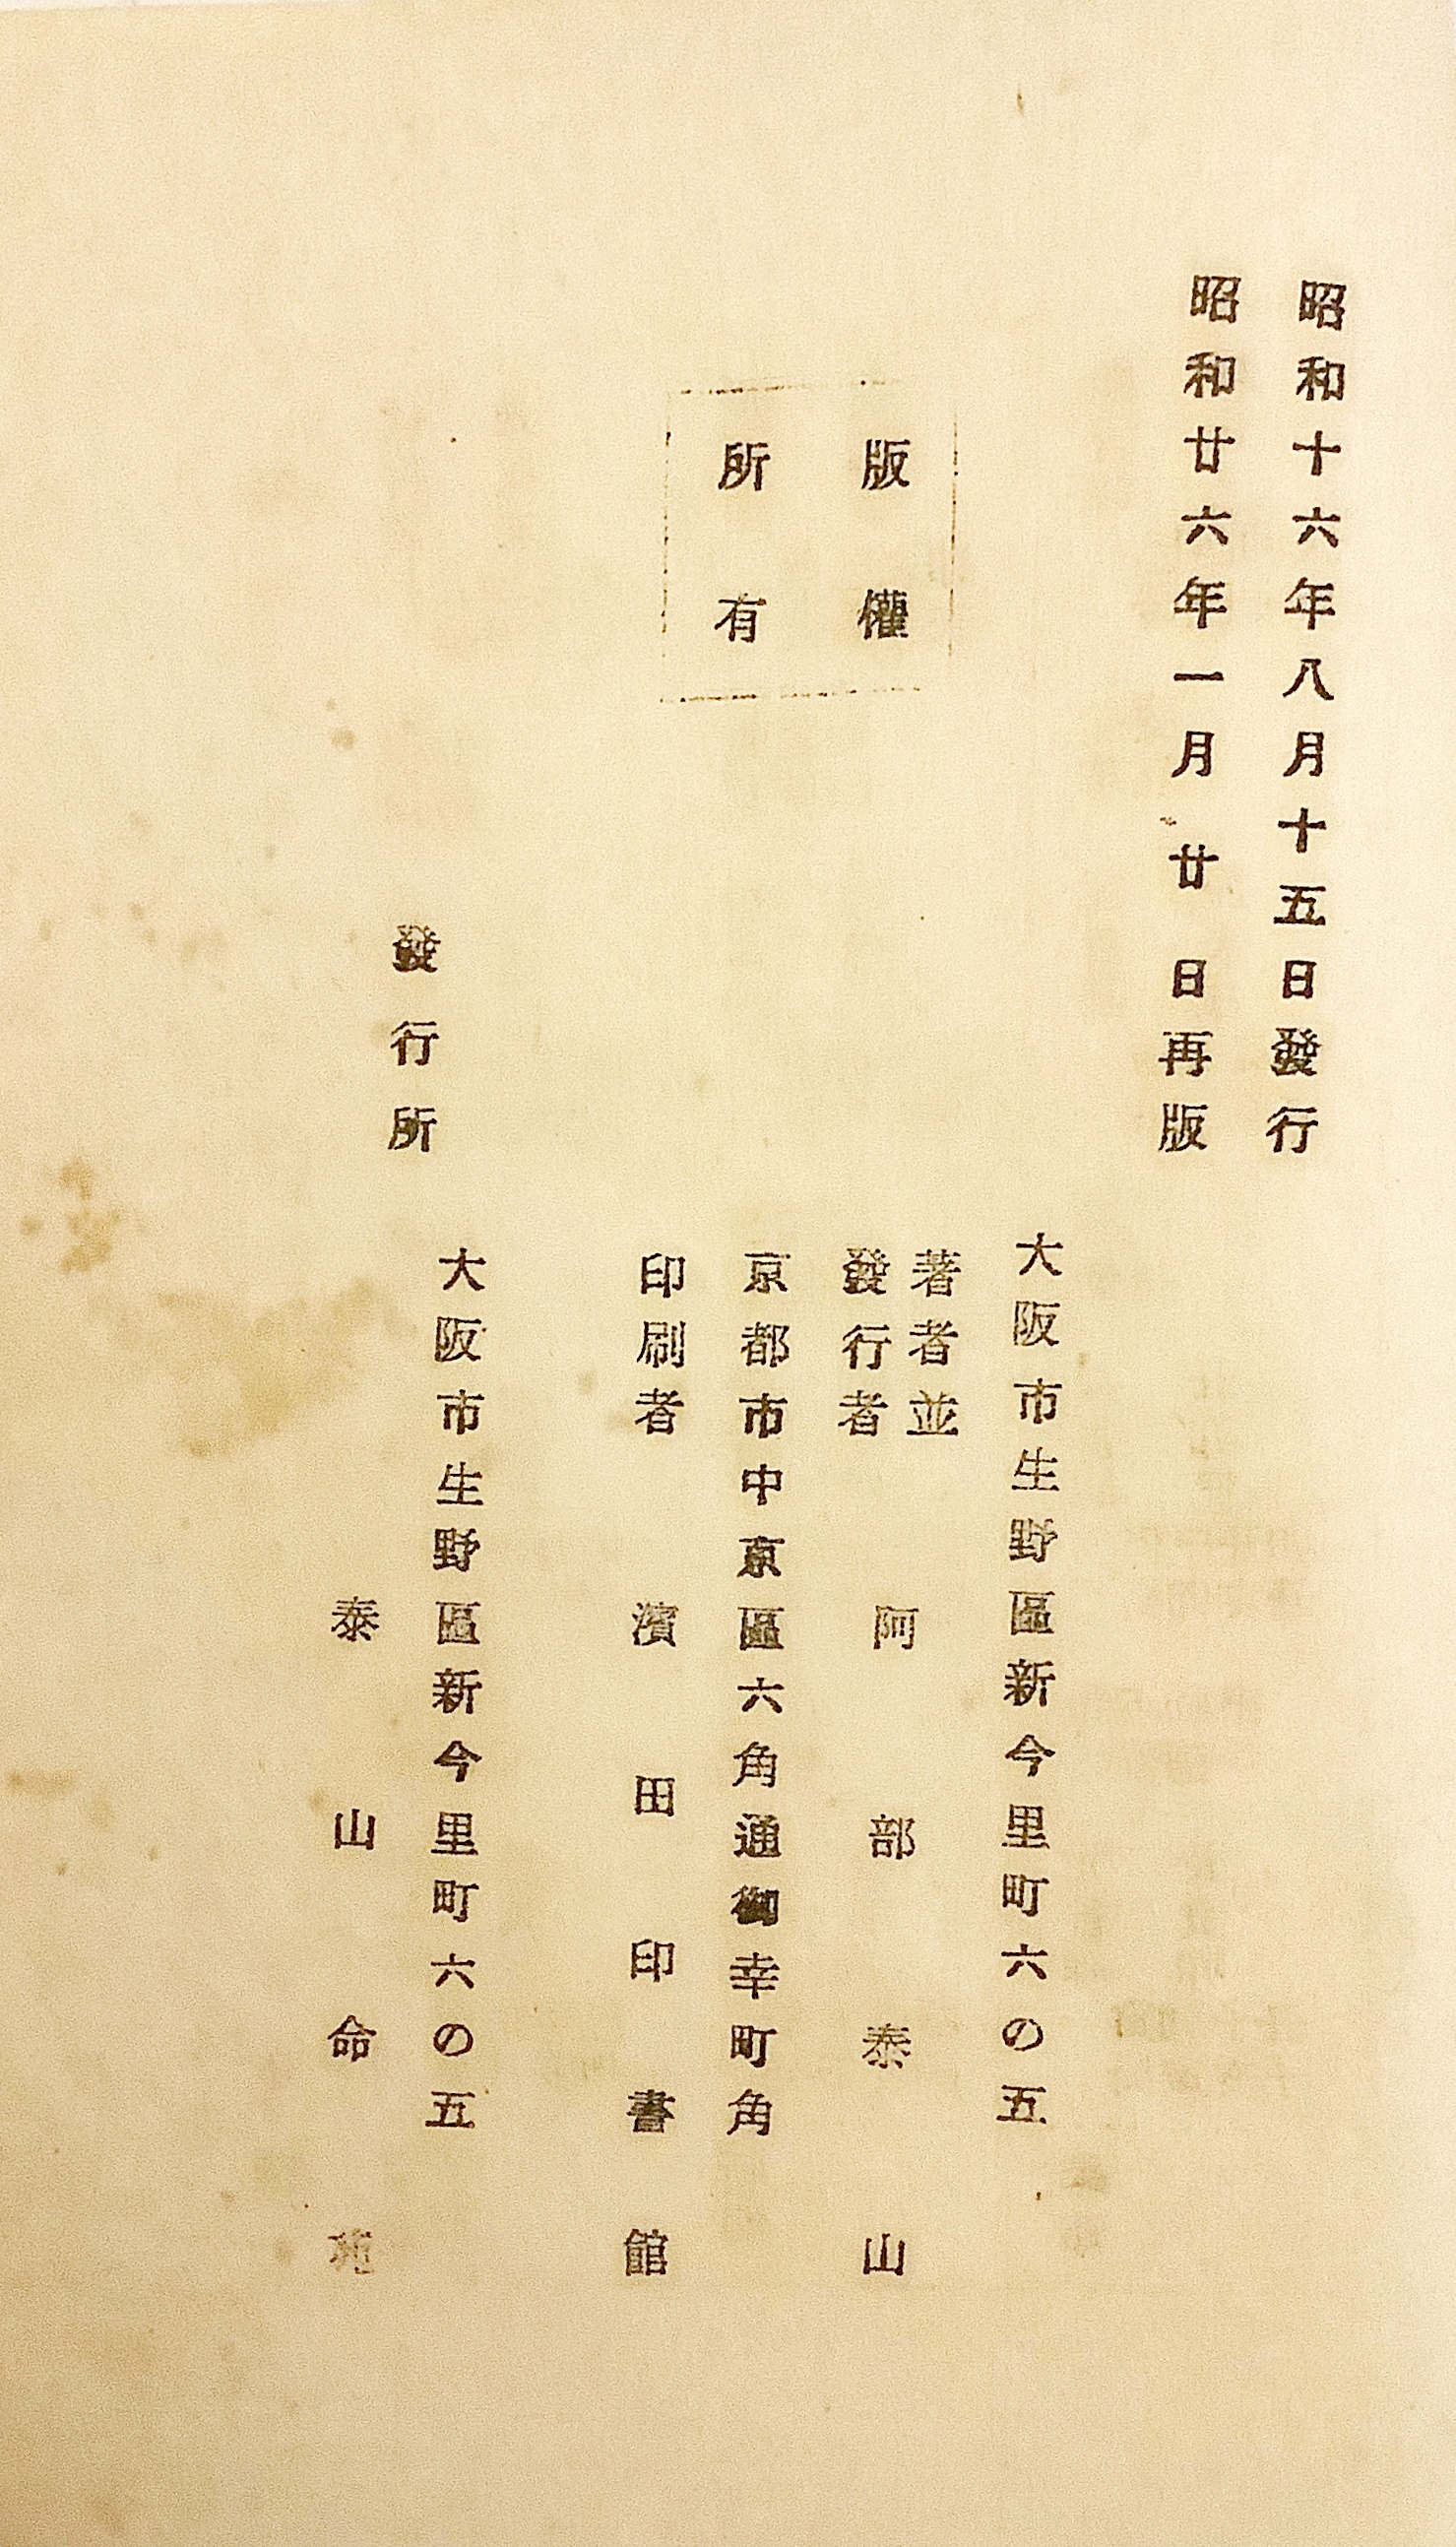 昭和十六年八月十五日發行
昭和廿六年一月廿日再版
版權
所有
大阪市生野區新今里町六の五
著者並
發行者 阿部泰山
京都市中京區六角通御幸町角
印刷者 濱田印書館
發行所
大阪市生野區新今里町六の五
泰山命苑